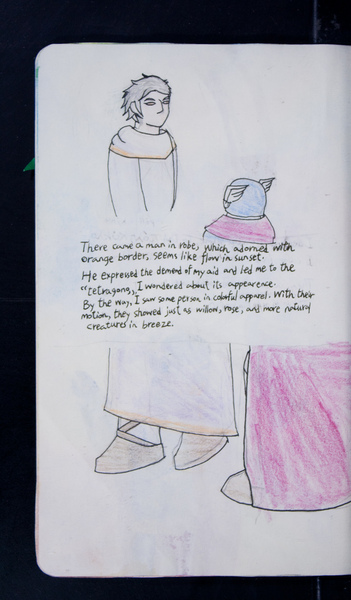 There came a man in robe, which adorned with
orange border, seems like flow in sunset.
He expressed the demend of my aid and led me to the
"Tetragong," I wondered about its appearence.
By the way, I saw some person in colorful apparel. With their
motion, they showed just as willow, rose, and more natural
creatures in breeze.